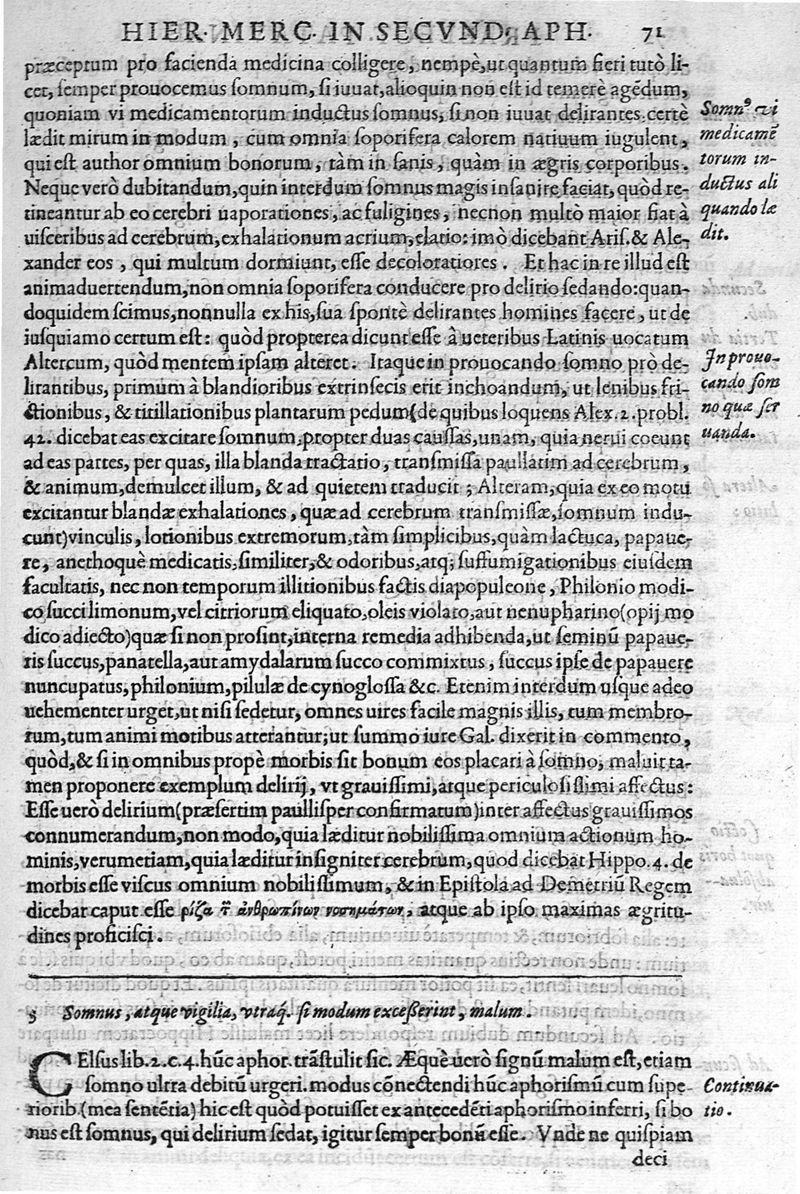 HIER· MERC· IN SECVND, APH· 71
præceptum pro facienda medicina colligere, nempè, ut quantum fieri tutò li-
cet, semper prouocemus somnum, si iuuat, alioquin non est id temerè agẽdum,
quoniam vi medicamentorum inductus somnus, si non iuuat delirantes certè
lædit mirum in modum, cum omnia soporifera calorem natiuum iugulent,
qui est author omnium bonorum, tàm in sanis, quàm in ægris corporibus.
Neque verò dubitandum, quin interdum somnus magis insanire faciat, quòd re-
tineantur ab eo cerebri uaporationes, ac fuligines, necnon multò maior fiat à
uisceribus ad cerebrum, exhalationum acrium, elatio: imò dicebant Aris. & Ale-
xander eos, qui multum dormiunt, esse decoloratiores. Et hac in re illud est
animaduertendum, non omnia soporifera conducere pro delirio sedando: quan-
doquidem scimus, nonnulla ex his, sua spontè delirantes homines facere, ut de
iusquiamo certum est: quòd propterea dicunt esse à ueteribus Latinis uocatum
Altercum, quòd mentem ipsam alteret. Itaque in prouocando somno prò de-
lirantibus, primum à blandioribus extrinsecis erit inchoandum, ut lenibus fri-
ctionibus, & titillationibus plantarum pedum (de quibus loquens Alex. 2. probl.
42. dicebat eas excitare somnum, propter duas caussas, unam, quia nerui coeunt
ad eas partes, per quas, illa blanda tractatio, transmissa paullatim ad cerebrum,
& animum, demulcet illum, & ad quietem traducit; Alteram, quia ex eo motu
excitantur blandæ exhalationes, quæ ad cerebrum transmissæ, somnum indu-
cunt) vinculis, lotionibus extremorum, tàm simplicibus, quàm lactuca, papaue-
re, anethoquè medicatis, similiter, & odoribus, atq; suffumigationibus eiusdem
facultatis, nec non temporum illitionibus factis diapopuleone, Philonio modi-
co succi limonum, vel citriorum eliquato, oleis violato, aut nenupharino (opij mo
dico adiecto) quæ si non prosint, interna remedia adhibenda, ut seminũ papaue-
ris succus, panatella, aut amydalarum succo commixtus, succus ipse de papauere
nuncupatus, philonium, pilulæ de cynoglossa &c. Etenim interdum usque adeo
uehementer urget, ut nisi sedetur, omnes uires facile magnis illis, tum membro-
rum, tum animi motibus atterantur; ut summo iure Gal. dixerit in commento,
quòd, & si in omnibus propè morbis sit bonum eos placari à somno, maluit ta-
men proponere exemplum delirij, vt grauissimi, atque periculosissimi affectus:
Esse uerò delirium (præsertim paullisper confirmatum) inter affectus grauissimos
connumerandum, non modo, quia læditur nobilissima omnium actionum ho-
minis, verumetiam, quia læditur insigniter cerebrum, quod dicebat Hippo. 4. de
morbis esse viscus omnium nobilissimum, & in Epistola ad Demetriũ Regem
dicebat caput esse ῥίζα τ̃ ἀνθρωπίνων νοσημάτων, atque ab ipso maximas ægritu-
dines proficisci.
Somn⁹ vi
medicamẽ
torum in-
ductus ali
quando læ
dit.
In prouo-
cando som
no quæ ser
uanda.
3 Somnus, atque vigilia, vtraq. si modum excesserint, malum.
CElsus lib. 2. c. 4. hũc aphor. trãstulit sic. Æquè uerò signũ malum est, etiam
somno ultra debitũ urgeri. modus cõnectendi hũc aphorismũ cum supe-
riorib. (mea sentẽtia) hic est quòd potuisset ex antecedẽti aphorismo inferri, si bo
nus est somnus, qui delirium sedat, igitur semper bonũ esse. Vnde ne quispiam
deci
Continua-
tio.